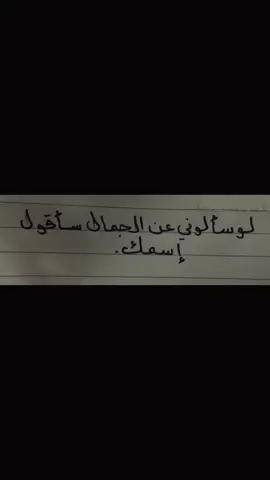 لو سألوني عن الجمال سأقول
إسمك.